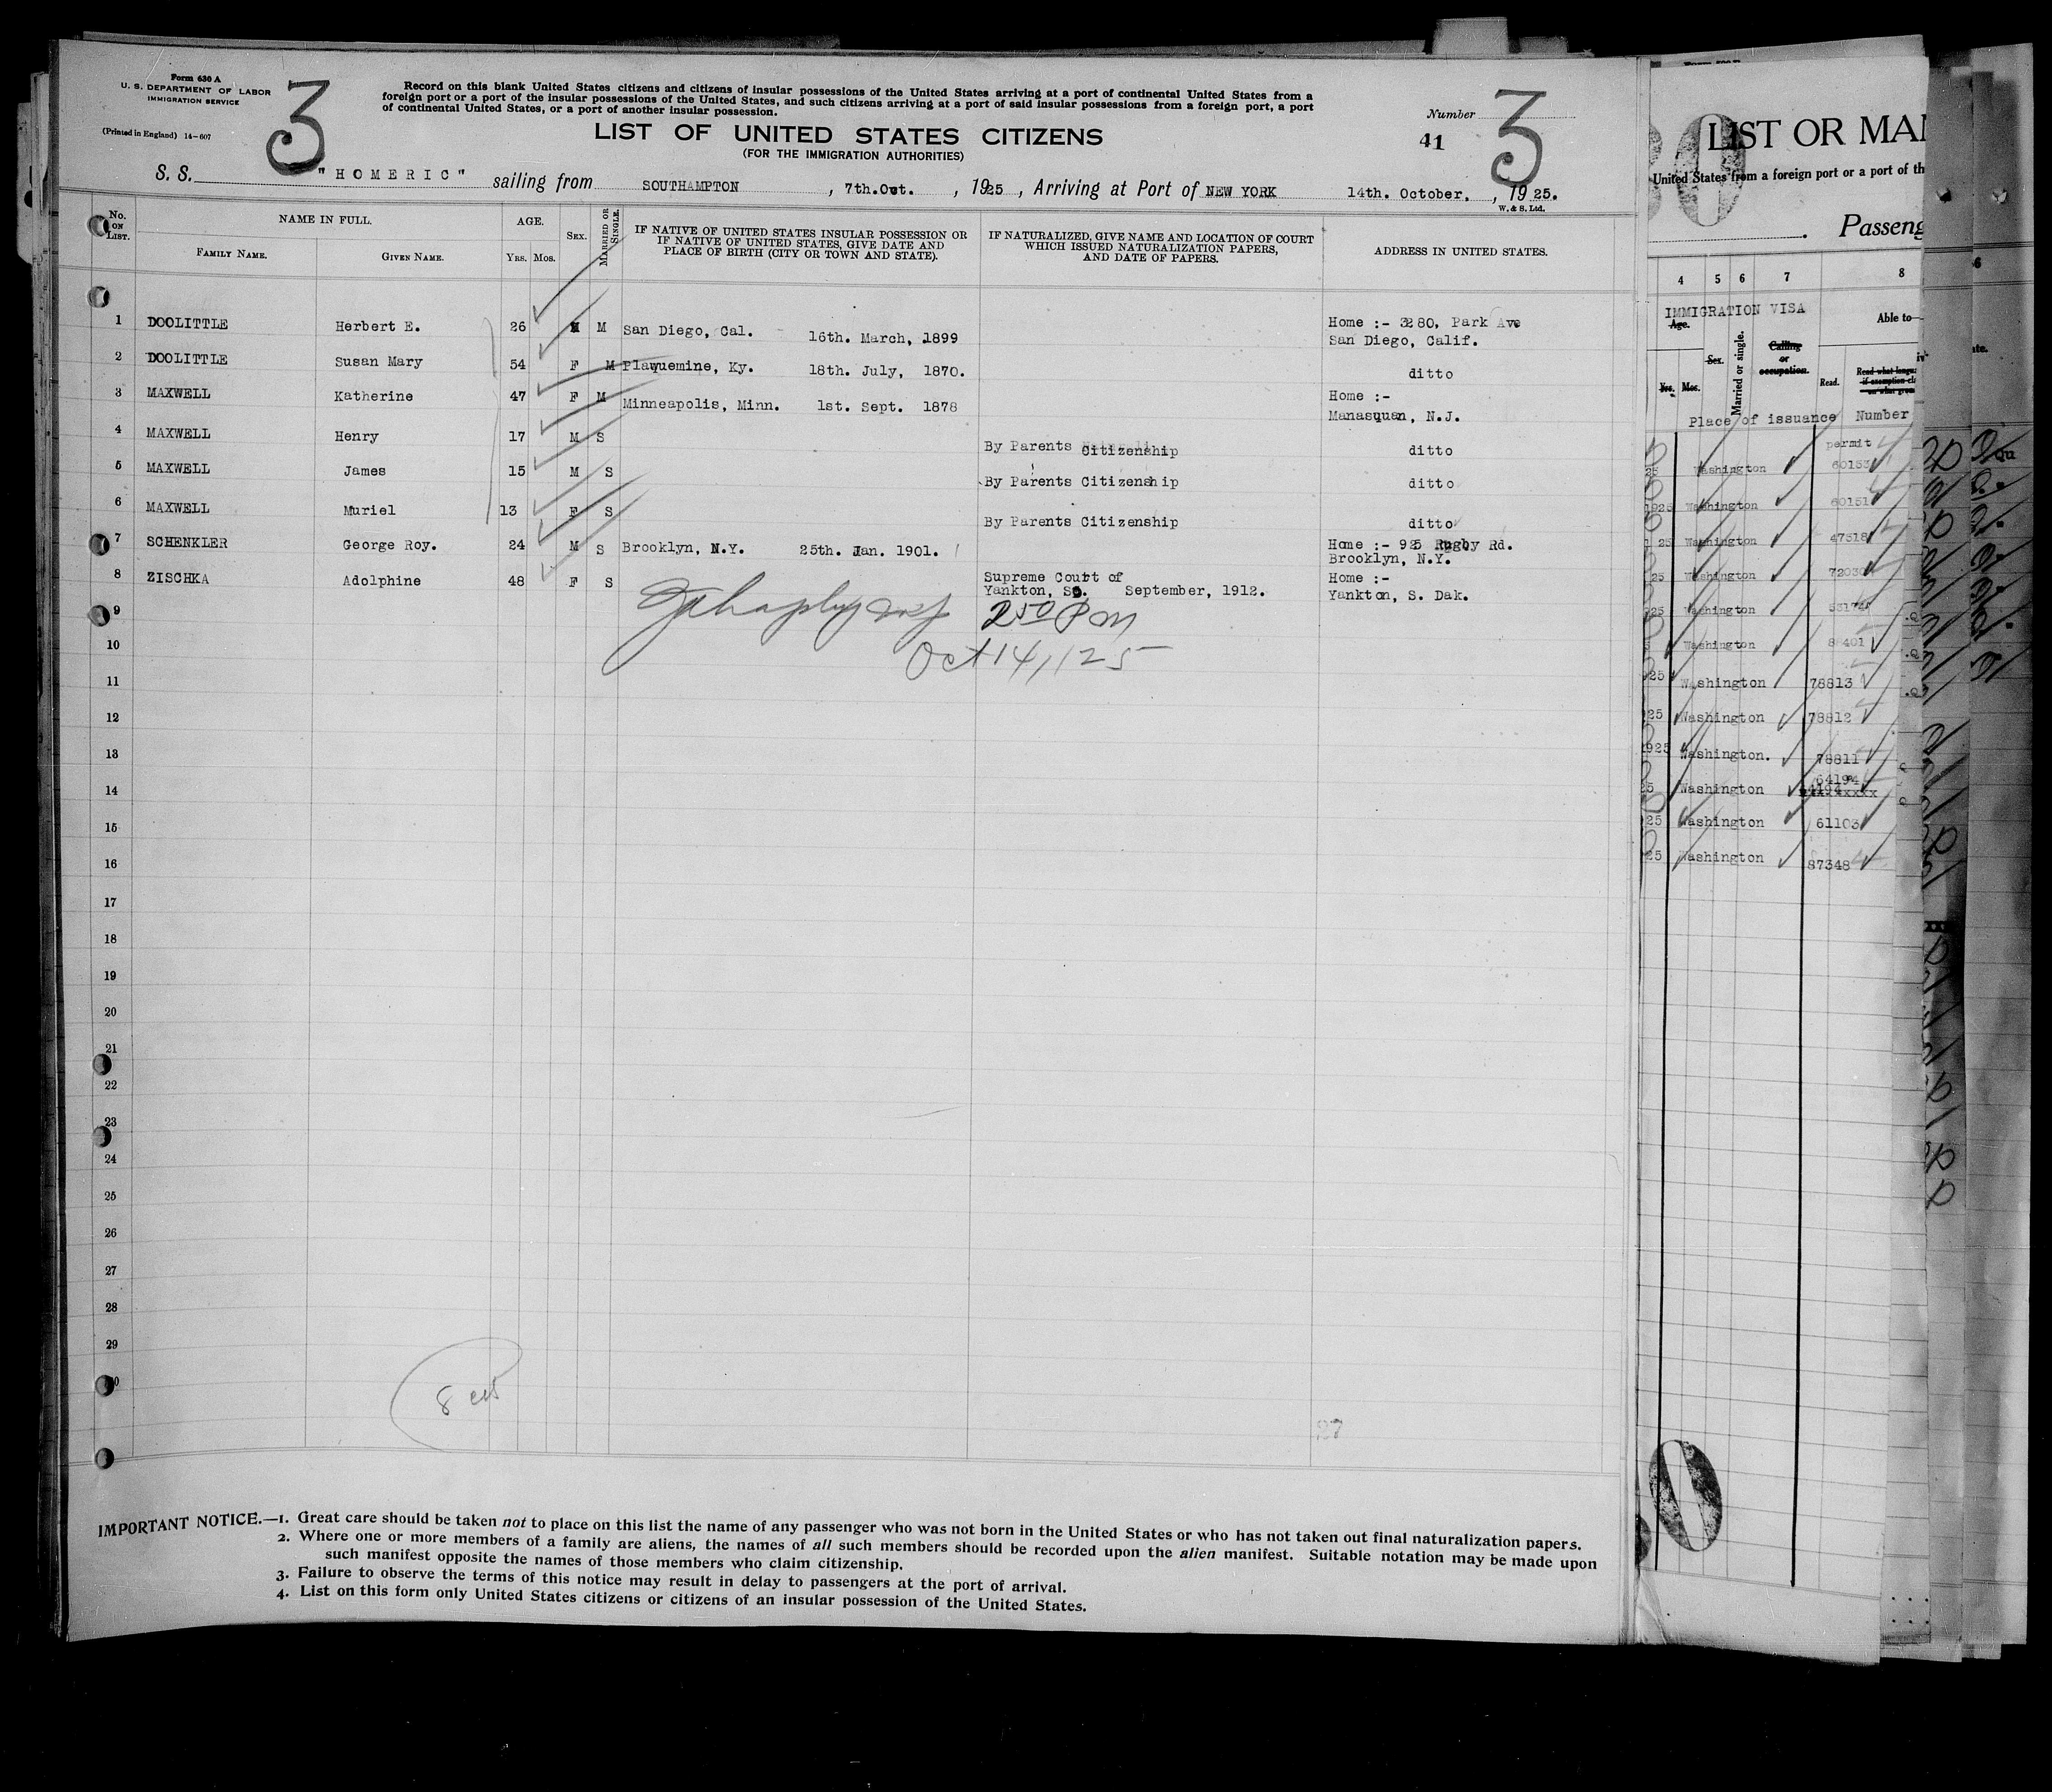 Form 630 A
U. S. DEPARTMENT OF LABOR
IMMIGRATION SERVICE
(Printed in England) 14-607
3
Record on this blank United States citizens and citizens of insular possessions of the United States arriving at a port of continental United States from a
foreign port or a port of the insular possessions of the United States, and such citizens arriving at a port of said insular possessions from a foreign port, a port
of continental United States, or a port of another insular possession.
LIST OF UNITED STATES CITIZENS
(FOR THE IMMIGRATION AUTHORITIES)
Number
41
3
S. S. "HOMERIC" sailing from SOUTHAMPTON, 7th.Oct., 1925, Arriving at Port of NEW YORK 14th. October, 1925.
W. & S. Ltd.
No. ON LIST. NAME IN FULL. AGE. SEX. MARRIED OR SINGLE.
FAMILY NAME. GIVEN NAME. YRS. MOS.
IF NATIVE OF UNITED STATES INSULAR POSSESSION OR
IF NATIVE OF UNITED STATES, GIVE DATE AND
PLACE OF BIRTH (CITY OR TOWN AND STATE).
IF NATURALIZED, GIVE NAME AND LOCATION OF COURT
WHICH ISSUED NATURALIZATION PAPERS,
AND DATE OF PAPERS.
ADDRESS IN UNITED STATES.
1 DOOLITTLE Herbert E. 26 M M San Diego, Cal. 16th. March, 1899 Home :- 3280, Park Ave
San Diego, Calif.
2 DOOLITTLE Susan Mary 54 F M Plaquemine, Ky. 18th. July, 1870. ditto
3 MAXWELL Katherine 47 F M Minneapolis, Minn. 1st. Sept. 1878 Home :-
Manasquan, N.J.
4 MAXWELL Henry 17 M S By Parents Citizenship ditto
5 MAXWELL James 15 M S By Parents Citizenship ditto
6 MAXWELL Muriel 13 F S By Parents Citizenship ditto
7 SCHENKLER George Roy. 24 M S Brooklyn, N.Y. 25th. Jan. 1901. Home :- 925 Rugby Rd.
Brooklyn, N.Y.
8 ZISCHKA Adolphine 48 F S Supreme Court of
Yankton, SD. September, 1912. Home :-
Yankton, S. Dak.
9
250 Pm
10
Oct 14/125
11
12
13
14
15
16
17
18
19
20
21
22
23
24
25
26
27
28
29
8
27
IMPORTANT NOTICE.—1. Great care should be taken not to place on this list the name of any passenger who was not born in the United States or who has not taken out final naturalization papers.
2. Where one or more members of a family are aliens, the names of all such members should be recorded upon the alien manifest. Suitable notation may be made upon
such manifest opposite the names of those members who claim citizenship.
3. Failure to observe the terms of this notice may result in delay to passengers at the port of arrival.
4. List on this form only United States citizens or citizens of an insular possession of the United States.
LIST OR MAN
United States from a foreign port or a port of th
Passeng
4 5 6 7 8
IMMIGRATION VISA
Age. Sex. Married or single. Calling or occupation. Able to—
Yrs. Mos. Read.
Place of issuance Number
permit
Washington 60153
1925 Washington 60151
25 Washington 47518
25 Washington
25 Washington
Washington
25 Washington 78813
25 Washington 78812
1925 Washington. 78811
Washington 64194
25 Washington 61103
25 Washington 87348